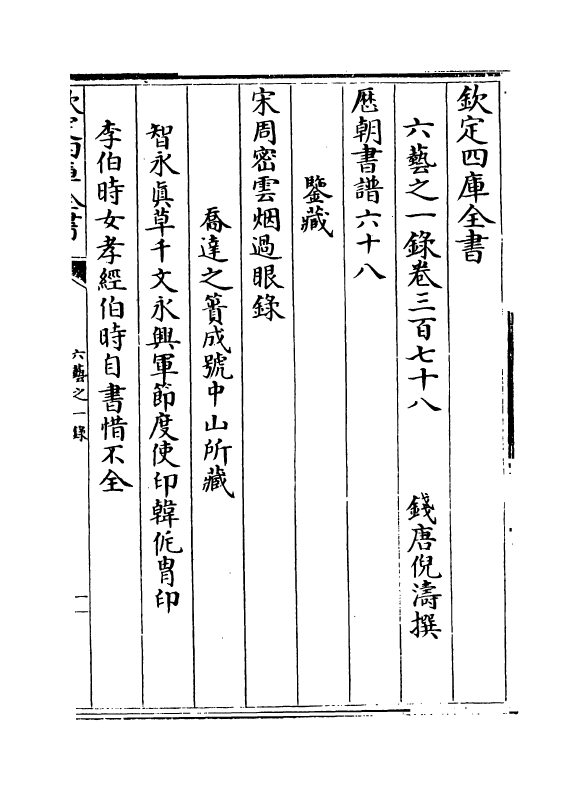 欽定四庫全書
六藝之一錄卷三百七十八　錢唐倪濤撰
歷朝書譜六十八
鑒藏
宋周密雲烟過眼錄
喬達之簣成號中山所藏
智永眞草千文永興軍節度使印韓侂胄印
李伯時女孝經伯時自書惜不全
欽定四庫全書
六藝之一錄
一